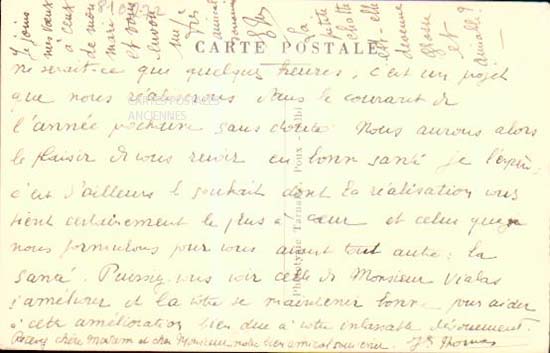 CARTE POSTALE
ne serait-ce que quelques heures, c'est un projet
que nous réaliserons dans le courant de
l'année prochaine sans doute. Nous aurons alors
le plaisir de vous revoir en bonne santé je l'espère,
c'est d'ailleurs le souhait dont la réalisation vous
tient certainement le plus à cœur et celui que
nous formulons pour vous avant tout autre : la
santé. Puissiez-vous voir celle de Monsieur Vialas
s'améliorer et la vôtre se maintenir bonne pour aider
à cette amélioration bien due à votre inlassable dévouement.
Recevez chère Madame et cher Monsieur notre bien amical souvenir. Thomas
Je joins
mes vœux
à ceux
de mon
mari
et vous
envoie
La
petite
chatte
est-elle
devenue
grosse
et
aimable ?
CARTES POSTALES
ANCIENNES
Phototypie Tarnaise Poux - Albi